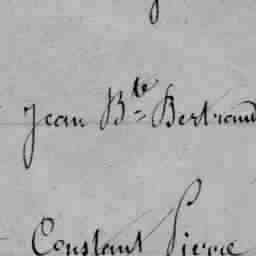 Jean Bte Bertrand
Constant Pierre